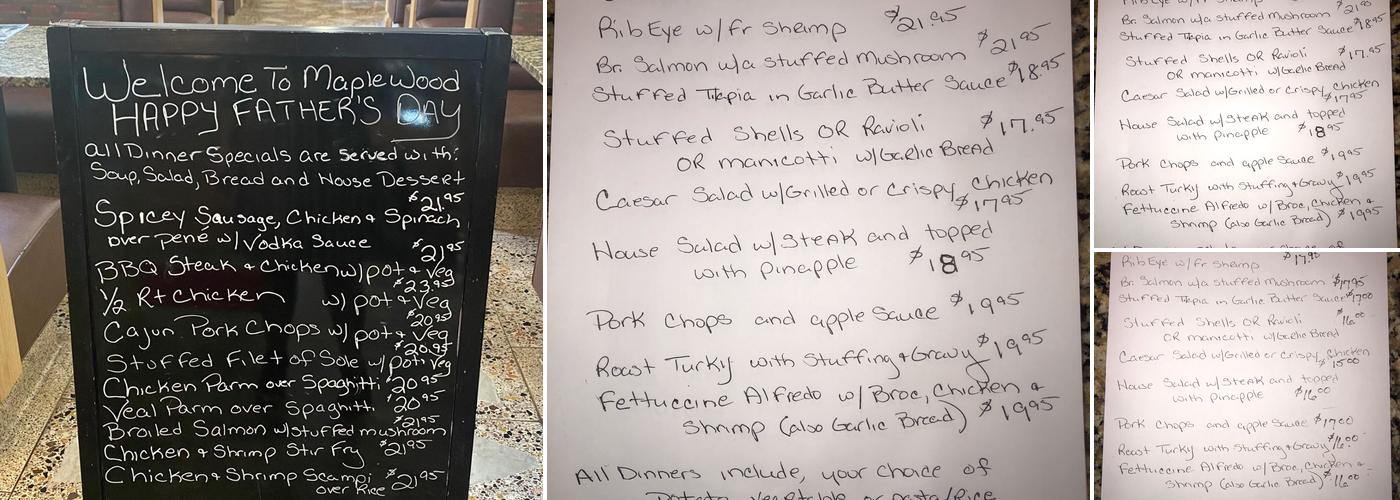 Welcome To Maplewood
HAPPY FATHER'S DAY
all Dinner Specials are served with:
Soup, Salad, Bread and House Dessert
$21.95
Spicey Sausage, Chicken & Spinach
over pené w/ Vodka Sauce $21.95
BBQ Steak & Chicken w/ pot & Veg
$23.95
1/2 Rt Chicken w/ pot & Veg
$20.95
Cajun Pork Chops w/ pot & Veg
$20.95
Stuffed Filet of Sole w/ pot & Veg
Chicken Parm over Spaghitti $20.95
Veal Parm over Spaghitti $20.95
$21.95
Broiled Salmon w/stuffed mushroom
Chicken & Shrimp Stir Fry $21.95
Chicken & Shrimp Scampi
over Rice $21.95
RibEye w/Fr Shrimp $21.95
Br. Salmon w/a stuffed Mushroom $21.95
Stuffed Tilapia in Garlic Butter Sauce $18.95
Stuffed Shells OR Ravioli $17.95
OR manicotti w/Garlic Bread
Caesar Salad w/Grilled or Crispy Chicken
$17.95
House Salad w/STEAK and topped
with pineapple $18.95
Pork Chops and apple Sauce $19.95
Roast Turky with Stuffing & Gravy $19.95
Fettuccine Alfredo w/ Broc, Chicken &
Shrimp (also Garlic Bread) $19.95
All Dinners include, your choice of
Potato, vegetable or pasta/Rice
Br. Salmon w/a stuffed Mushroom $21.95
Stuffed Tilapia in Garlic Butter Sauce $18.95
Stuffed Shells OR Ravioli $17.95
OR manicotti w/Garlic Bread
Caesar Salad w/Grilled or Crispy Chicken
$17.95
House Salad w/STEAK and topped
with pineapple $18.95
Pork Chops and apple Sauce $19.95
Roast Turky with Stuffing & Gravy $19.95
Fettuccine Alfredo w/ Broc, Chicken &
Shrimp (also Garlic Bread) $19.95
RibEye w/Fr Shrimp $17.90
Br. Salmon w/a stuffed Mushroom $17.95
Stuffed Tilapia in Garlic Butter Sauce $17.00
Stuffed Shells OR Ravioli $16.00
OR manicotti w/Garlic Bread
Caesar Salad w/Grilled or Crispy Chicken
$15.00
House Salad w/STEAK and topped
with pineapple $16.00
Pork Chops and apple Sauce $17.00
Roast Turky with Stuffing & Gravy $16.00
Fettuccine Alfredo w/ Broc, Chicken &
Shrimp (also Garlic Bread) $16.00